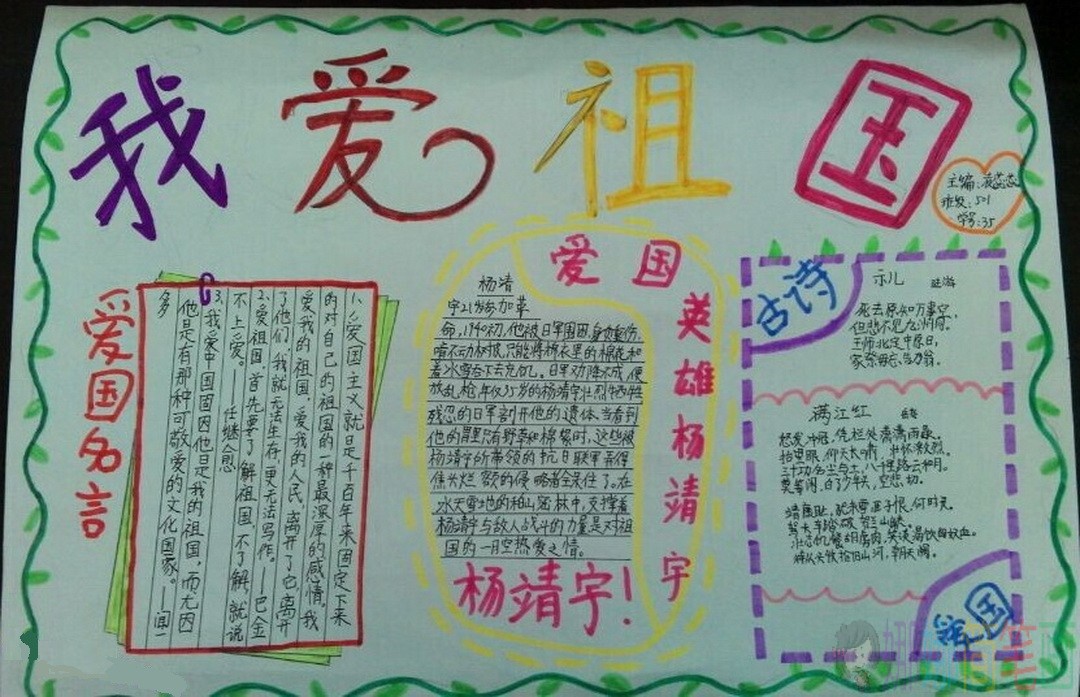 我爱祖国
主编:袁蕊蕊
班级:501
学号:35
爱国名言
1.爱国主义就是千百年来固定下来
的对自己的祖国的一种最深厚的感情。我
爱我的祖国,爱我的人民,离开了它,离开
了他们,我就无法生存,更无法写作。——巴金
2.爱祖国,首先要了解祖国,不了解,就说
不上爱。——任继愈
3.我爱中国固因他是我的祖国,而尤因
他是有那种可敬爱的文化国家。——闻一
多
爱国英雄杨靖宇
杨靖
宇21岁参加革
命,1940初,他被日军围困,身负重伤,
啃不动树根,只能将棉衣里的棉花和
着冰雪吞下去充饥。日军劝降不成,便
放乱枪,年仅35岁的杨靖宇壮烈牺牲
残忍的日军割开他的遗体,当看到
他的胃里只有野草和棉絮时,这些被
杨靖宇所带领的抗日联军弄得
焦头烂额的侵略者全呆住了。在
冰天雪地的和山涵林中,支撑着
杨靖宇与敌人战斗的力量是对祖
国的一月空热爱之情。
杨靖宇!
古诗
示儿 陆游
死去原知万事空,
但悲不见九州同。
王师北定中原日,
家祭毋忘告乃翁。
满江红 岳飞
怒发冲冠,凭栏处潇潇雨歇。
抬望眼,仰天长啸,壮怀激烈。
三十功名尘与土,八千里路云和月。
莫等闲,白了少年头,空悲切。
靖康耻,犹未雪,臣子恨,何时灭。
驾长车踏破贺兰山缺。
壮志饥餐胡虏肉,笑谈渴饮匈奴血。
待从头收拾旧山河,朝天阙。
爱国